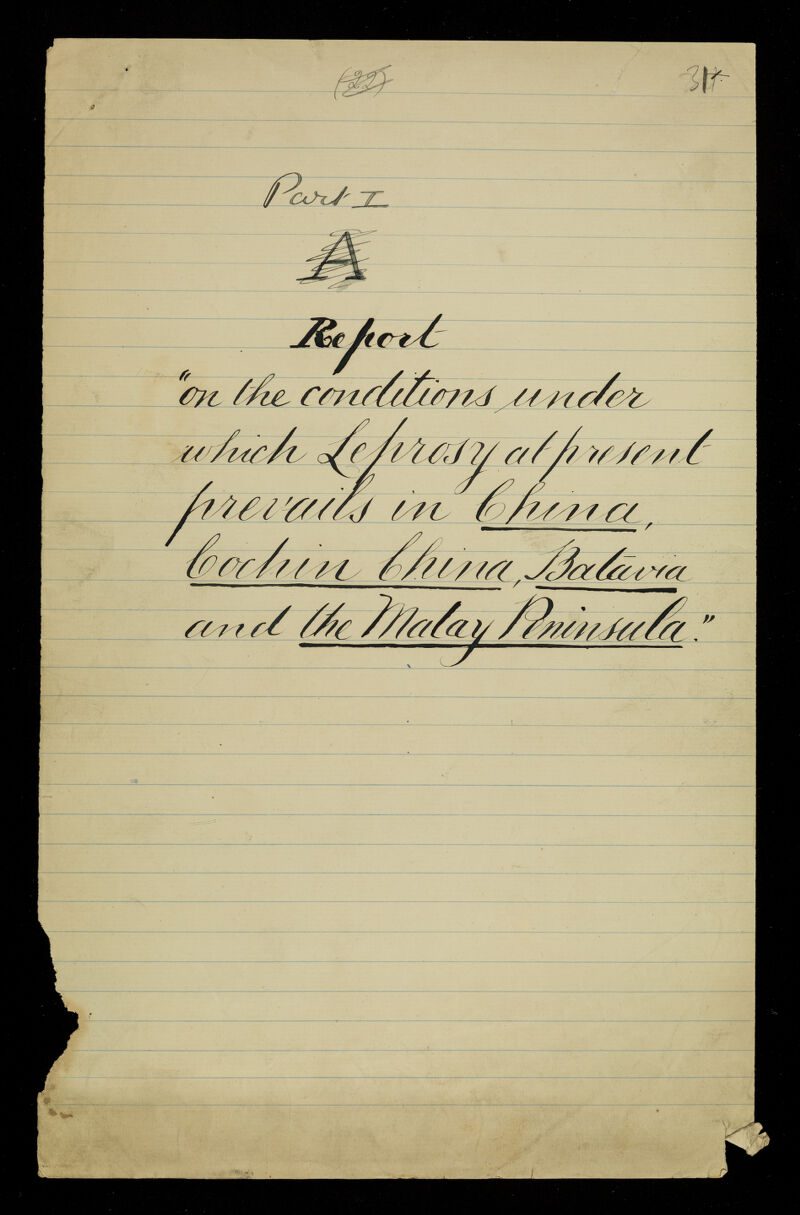 (22)
Part I
A
Report
"on the conditions under
which Leprosy at present
prevails in China,
Cochin China, Batavia
and the Malay Peninsula."